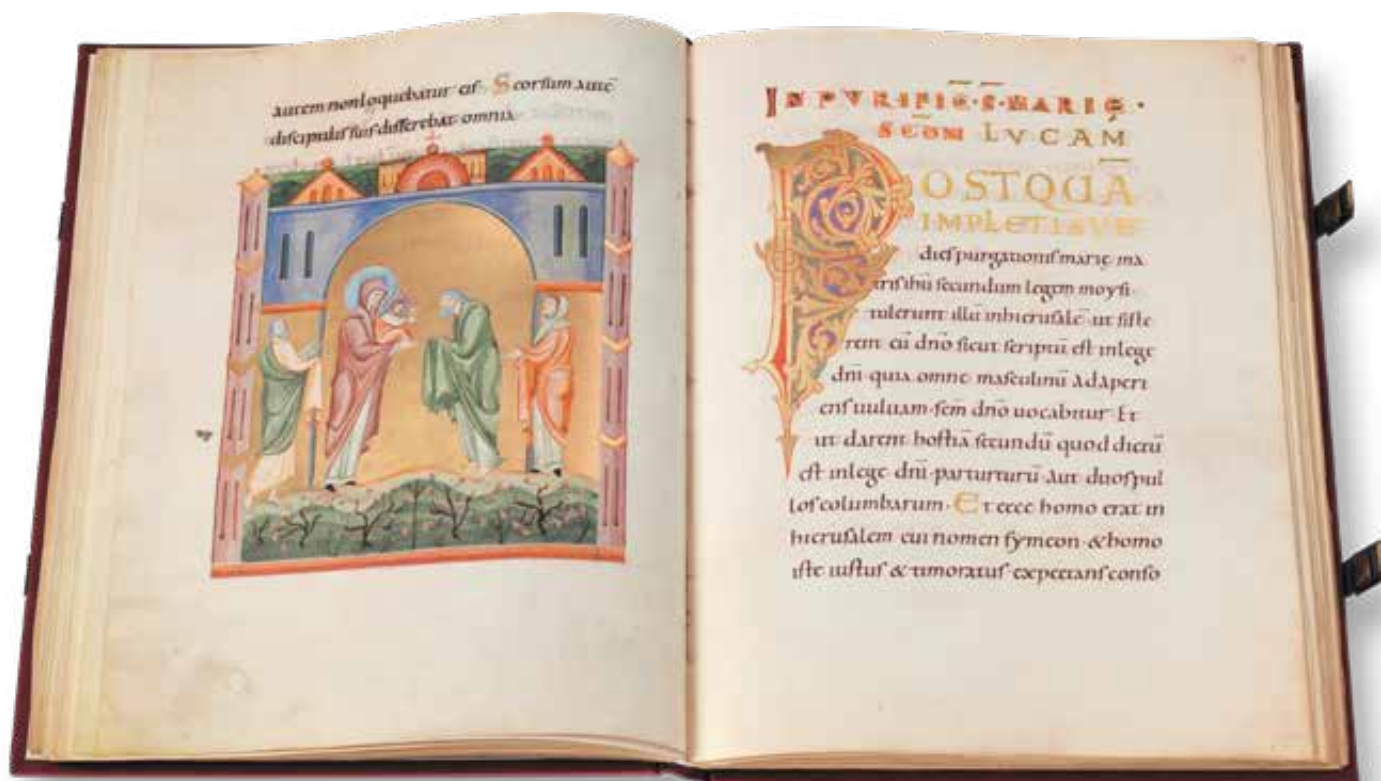 autem non loquebatur eis· Seorsum autē
discipulis suis disserebat omnia
IN PVRIFIC̄·S̄·MARIĘ·
SECDM LVCAM
POSTQUĀ
IMPLETI SVNT
dies purgationis marię ma
tris ihū secundum legem moysi·
tulerunt illū inhierusalē· ut siste
rent eū dnō sicut scriptū est inlege
dnī· quia omne masculinū adaperi
ens uuluam· scm̄ dnō uocabitur· Et
ut darent hostiā secundū quod dictū
est inlege dnī· parturturū· aut duos pul
los columbarum· Et ecce homo erat in
hierusalem cui nomen symeon· & homo
iste iustus & timoratus· expectans conso